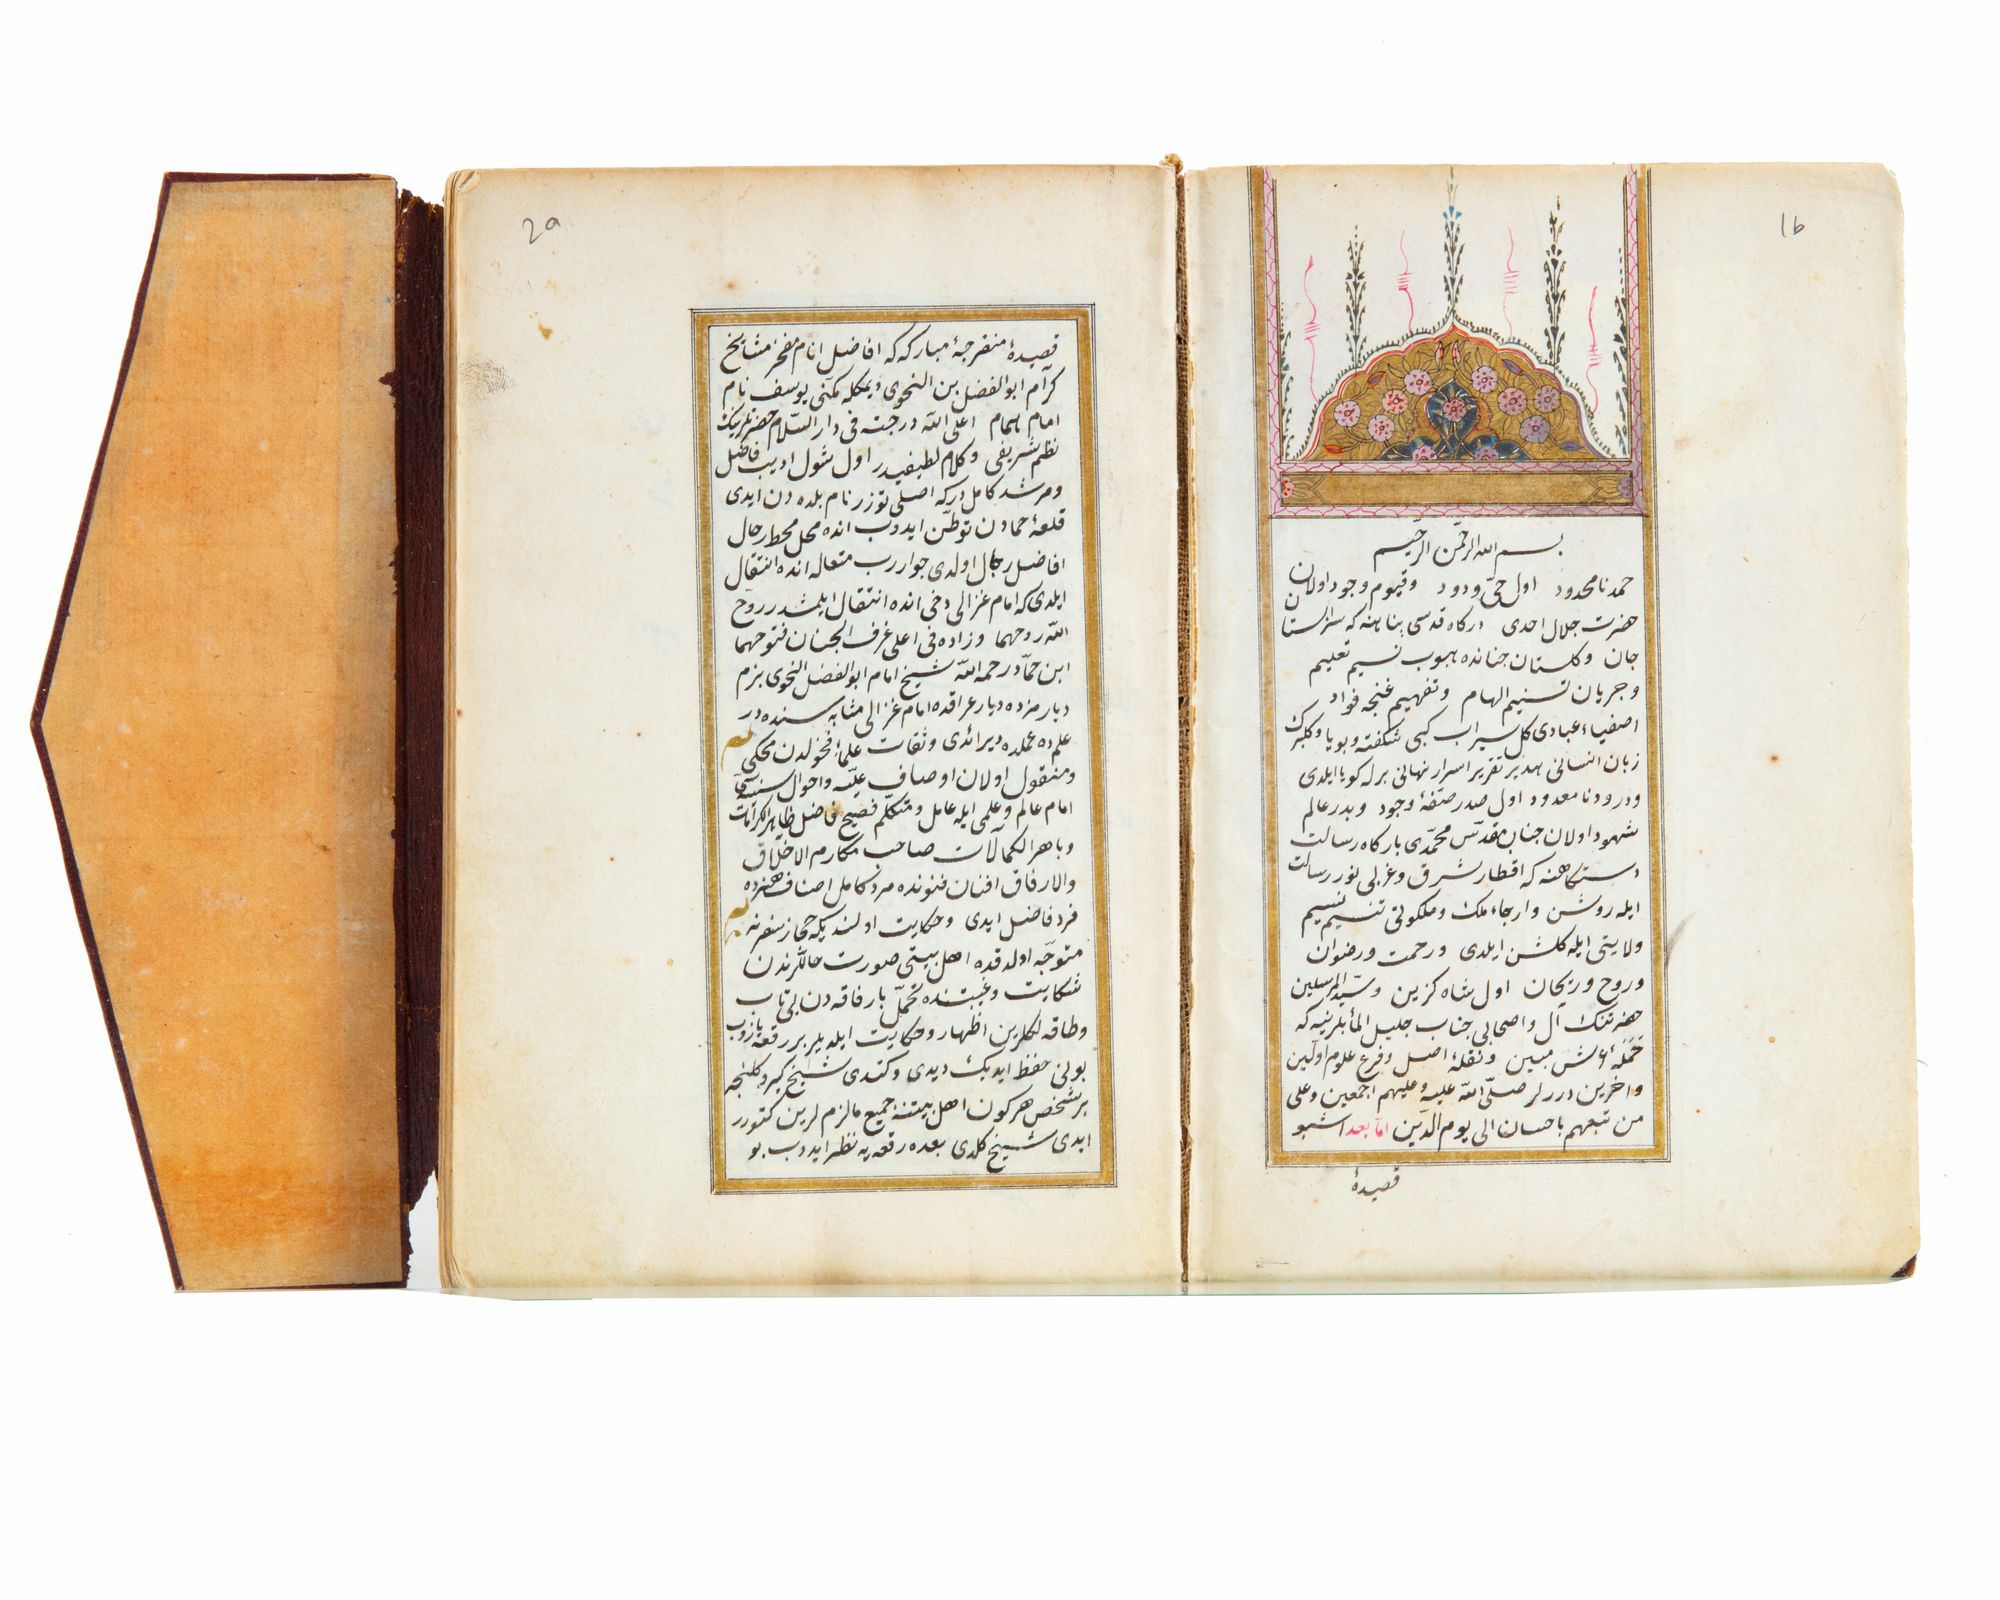 1b
بسم الله الرحمن الرحيم
حمد نامحدود اول حىّ ودود وقيوم وجود اولان
حضرت جلال احدى دركاه قدسى پناهنه كه سرابستان
جان وكلستان جنانده هبوب نسيم تعليم
وجريان تسنيم الهام وتفهيم غنجه فواد
اصفياء عبادى كل سيراب كبى شكفته وبويا وكلبرك
زبان انسانى هدير تقرير اسرار نهانى برله كويا ايلدى
ودرود نامعدود اول صدر صفّۀ وجود وبدر عالم
شهود اولان جناب مقدّس محمّدى باركاه رسالت
دستكاهنه كه اقطار شرق وغربى نور رسالت
ايله روشن وارجاء ملك وملكوتى تنسيم نسيم
ولايتى ايله كلشن ايلدى ورحمت ورضوان
وروح وريحان اول شاه كزين وسيّد المرسلين
حضرتنك آل واصحابى جناب جليل المأبلرينه كه
حَمَلۀ عرش مبين ونقلۀ اصل وفرع علوم اولين
واخرين درلر صلّى الله عليه وعليهم اجمعين وعلى
من تبعهم باحسان الى يوم الدّين امّا بعد اشبو
قصيدۀ
2a
قصيدۀ منفرجۀ مباركه كه افاضل انام مفخر مشايخ
كرام ابو الفضل بن النحوى ديمكله مكنّى يوسف نام
امام همام اعلى الله درجته فى دار السّلام حضرتلرينك
نظم شريفى وكلام لطيفيدر اول شول اديب فاضل
ومرشد كامل دركه اصلى توزر نام بلده دن ايدى
قلعۀ حمادن توطّن ايدوب انده محل محط رحال
افاضل رجال اولدى جوار رب متعاله انده انتقال
ايلدى كه امام غزالى دخى انده انتقال ايلمشدر روّح
الله روحهما وزاده فى اعلى غرف الجنان فتوحهما
ابن حمّاد رحمه الله شيخ امام ابو الفضل النحوى بزم
ديارمزده ديار عراقده امام غزالى مثابه سنده در
علمده عملده ديرائدى وثقات علماء فحولدن محكى
ومنقول اولان اوصاف عليّه واحوال سنيّه سى
امام عالم وعلمى ايله عامل ومتكلّم فصيح فاضل ظاهر الكرامات
وباهر الكمالات صاحب مكارم الاخلاق
والارفاق افنان فنونده مرد كامل اصناف هنرده
فرد فاضل ايدى وحكايت اولنديكه حجاز سفرنه
متوجّه اولدقده اهل بيتى صورت حاللرندن
شكايت وغيبتنده تحمّل بار فاقه دن بى تاب
وطاقه لكلرين اظهار وحكايت ايلديلر بر رقعه يازوب
بونى حفظ ايديك ديدى وكتدى شيخ كيرو كلنجه
بر شخص هر كون اهل بيتنه جميع مالزم لرين كتورر
ايدى شيخ كلدى بعده رقعه يه نظر ايدوب بو